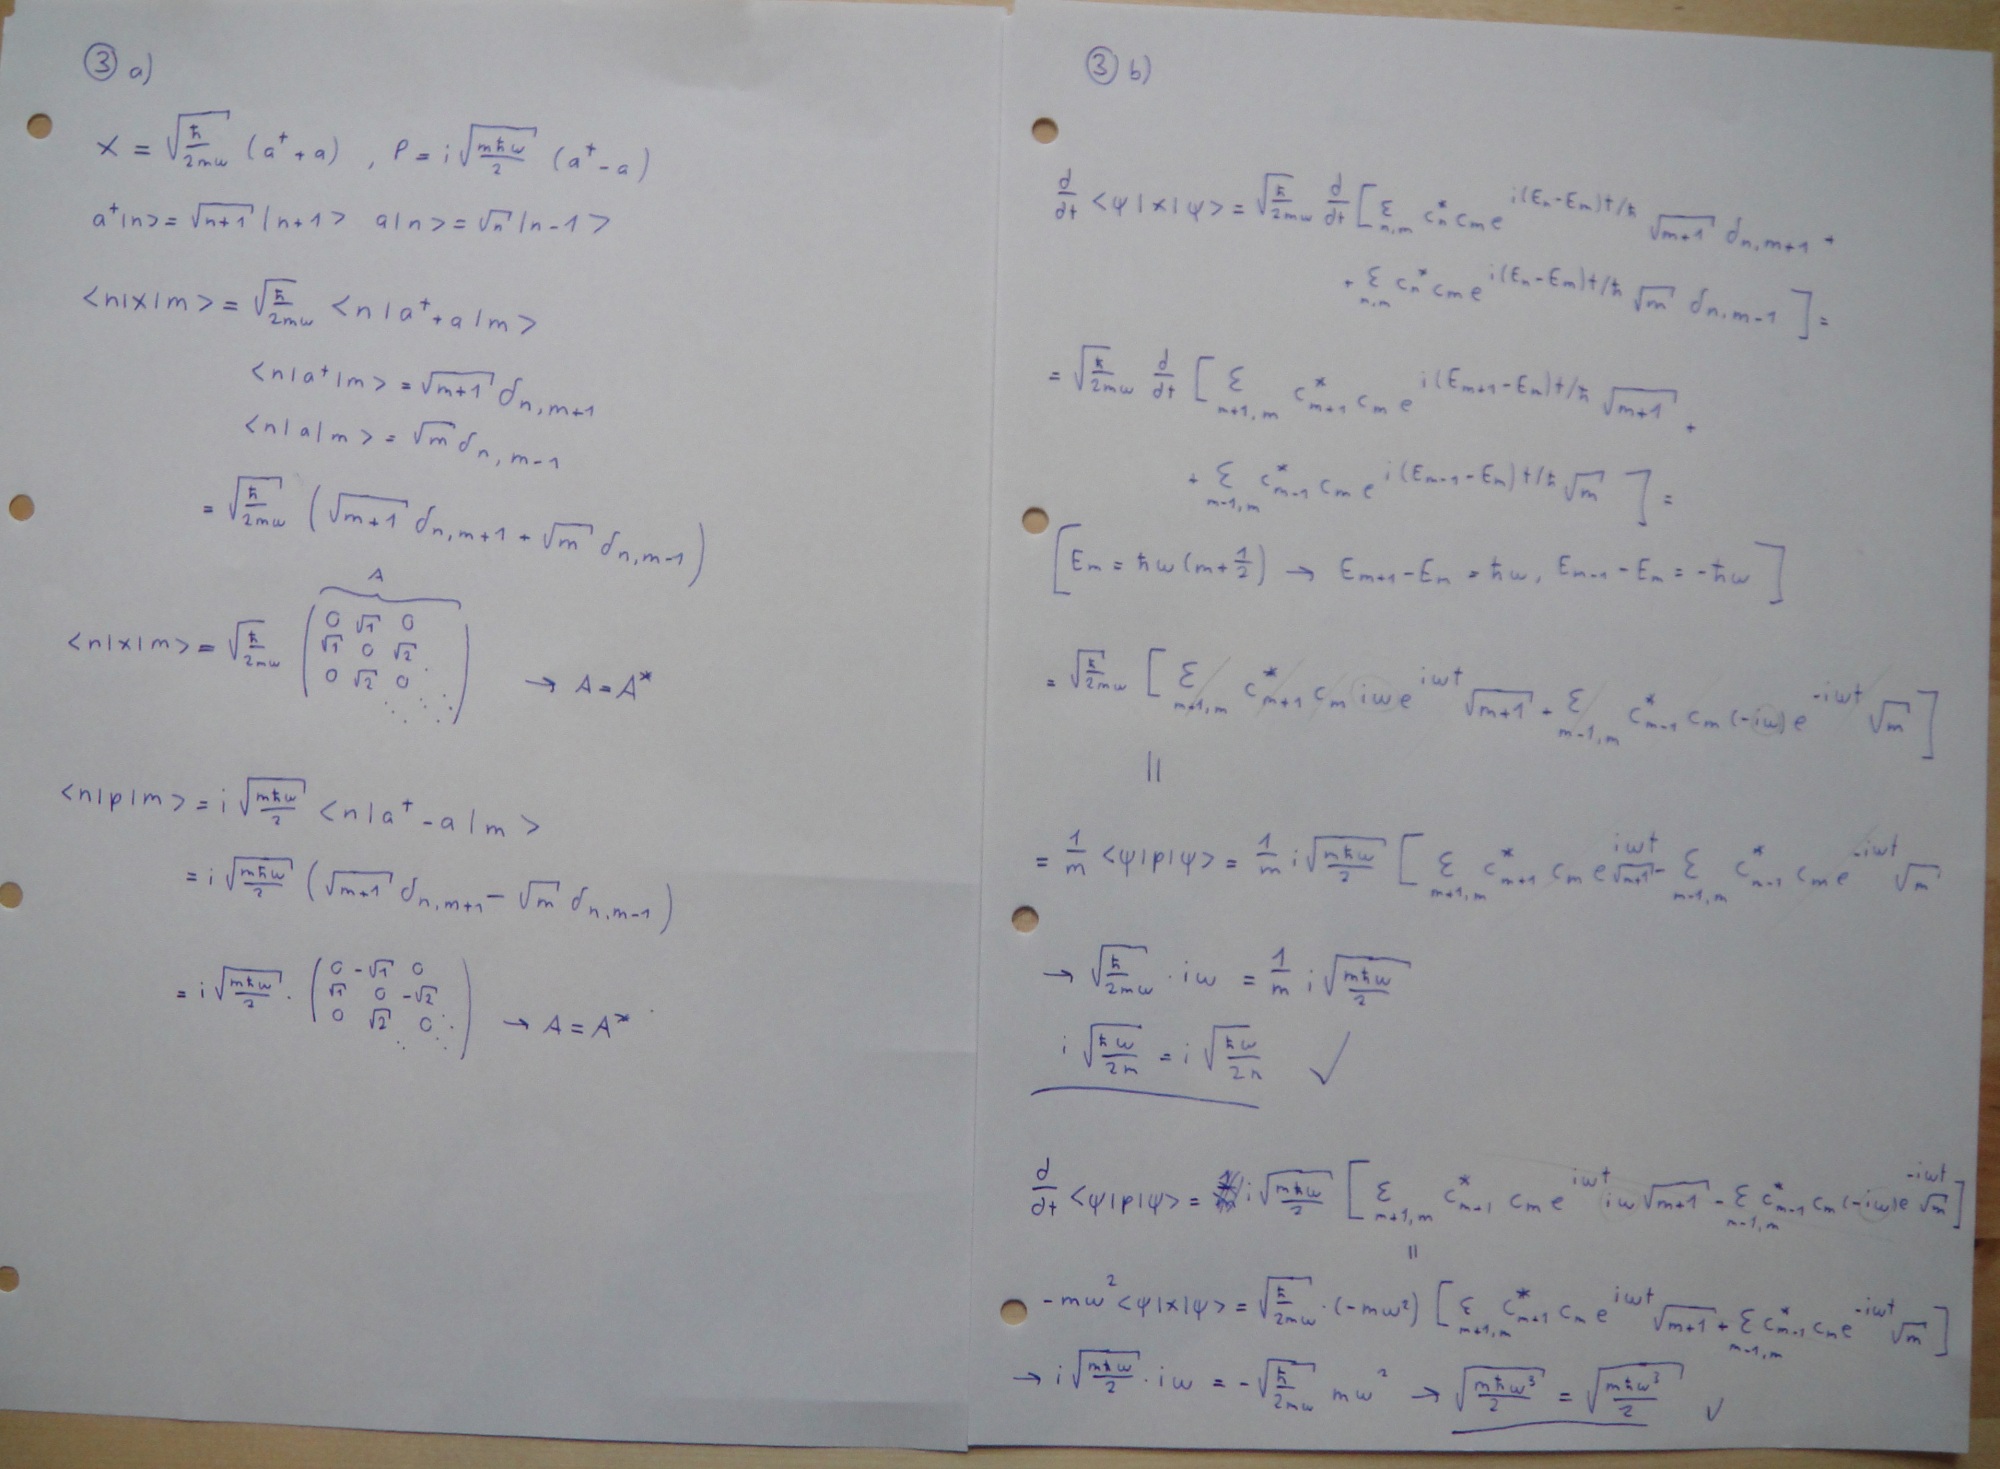 ③ a)
x = √(ħ/2mω) (a⁺ + a) , P = i √(mħω/2) (a⁺ - a)
a⁺|n> = √(n+1) |n+1> a|n> = √n |n-1>
<n|x|m> = √(ħ/2mω) <n|a⁺ + a|m>
<n|a⁺|m> = √(m+1) δn,m+1
<n|a|m> = √m δn,m-1
= √(ħ/2mω) (√(m+1) δn,m+1 + √m δn,m-1)
A
<n|x|m> = √(ħ/2mω) ( 0 √1 0
√1 0 √2
0 √2 0 ⋱ ) → A = A*
<n|p|m> = i √(mħω/2) <n|a⁺ - a|m>
= i √(mħω/2) (√(m+1) δn,m+1 - √m δn,m-1)
= i √(mħω/2) · ( 0 -√1 0
√1 0 -√2
0 √2 0 ⋱ ) → A = A*
③ b)
d/dt <ψ|x|ψ> = √(ħ/2mω) d/dt [ Σn,m cn* cm e^(i(En-Em)t/ħ) √(m+1) δn,m+1 +
+ Σn,m cn* cm e^(i(En-Em)t/ħ) √m δn,m-1 ] =
= √(ħ/2mω) d/dt [ Σm+1,m c*m+1 cm e^(i(Em+1-Em)t/ħ) √(m+1) +
+ Σm-1,m c*m-1 cm e^(i(Em-1-Em)t/ħ) √m ] =
[ Em = ħω(m+1/2) → Em+1-Em = ħω, Em-1-Em = -ħω ]
= √(ħ/2mω) [ Σm+1,m c*m+1 cm iω e^(iωt) √(m+1) + Σm-1,m c*m-1 cm (-iω) e^(-iωt) √m ]
||
= 1/m <ψ|p|ψ> = 1/m i √(mħω/2) [ Σm+1,m c*m+1 cm e^(iωt) √(m+1) - Σm-1,m c*m-1 cm e^(-iωt) √m
→ √(ħ/2mω) · iω = 1/m i √(mħω/2)
i √(ħω/2m) = i √(ħω/2m) ✓
d/dt <ψ|p|ψ> = i √(mħω/2) [ Σm+1,m c*m+1 cm e^(iωt) iω √(m+1) - Σm-1,m c*m-1 cm (-iω) e^(-iωt) √m ]
||
-mω² <ψ|x|ψ> = √(ħ/2mω) · (-mω²) [ Σm+1,m c*m+1 cm e^(iωt) √(m+1) + Σm-1,m c*m-1 cm e^(-iωt) √m ]
→ i √(mħω/2) · iω = -√(ħ/2mω) mω² → √(mħω³/2) = √(mħω³/2) ✓